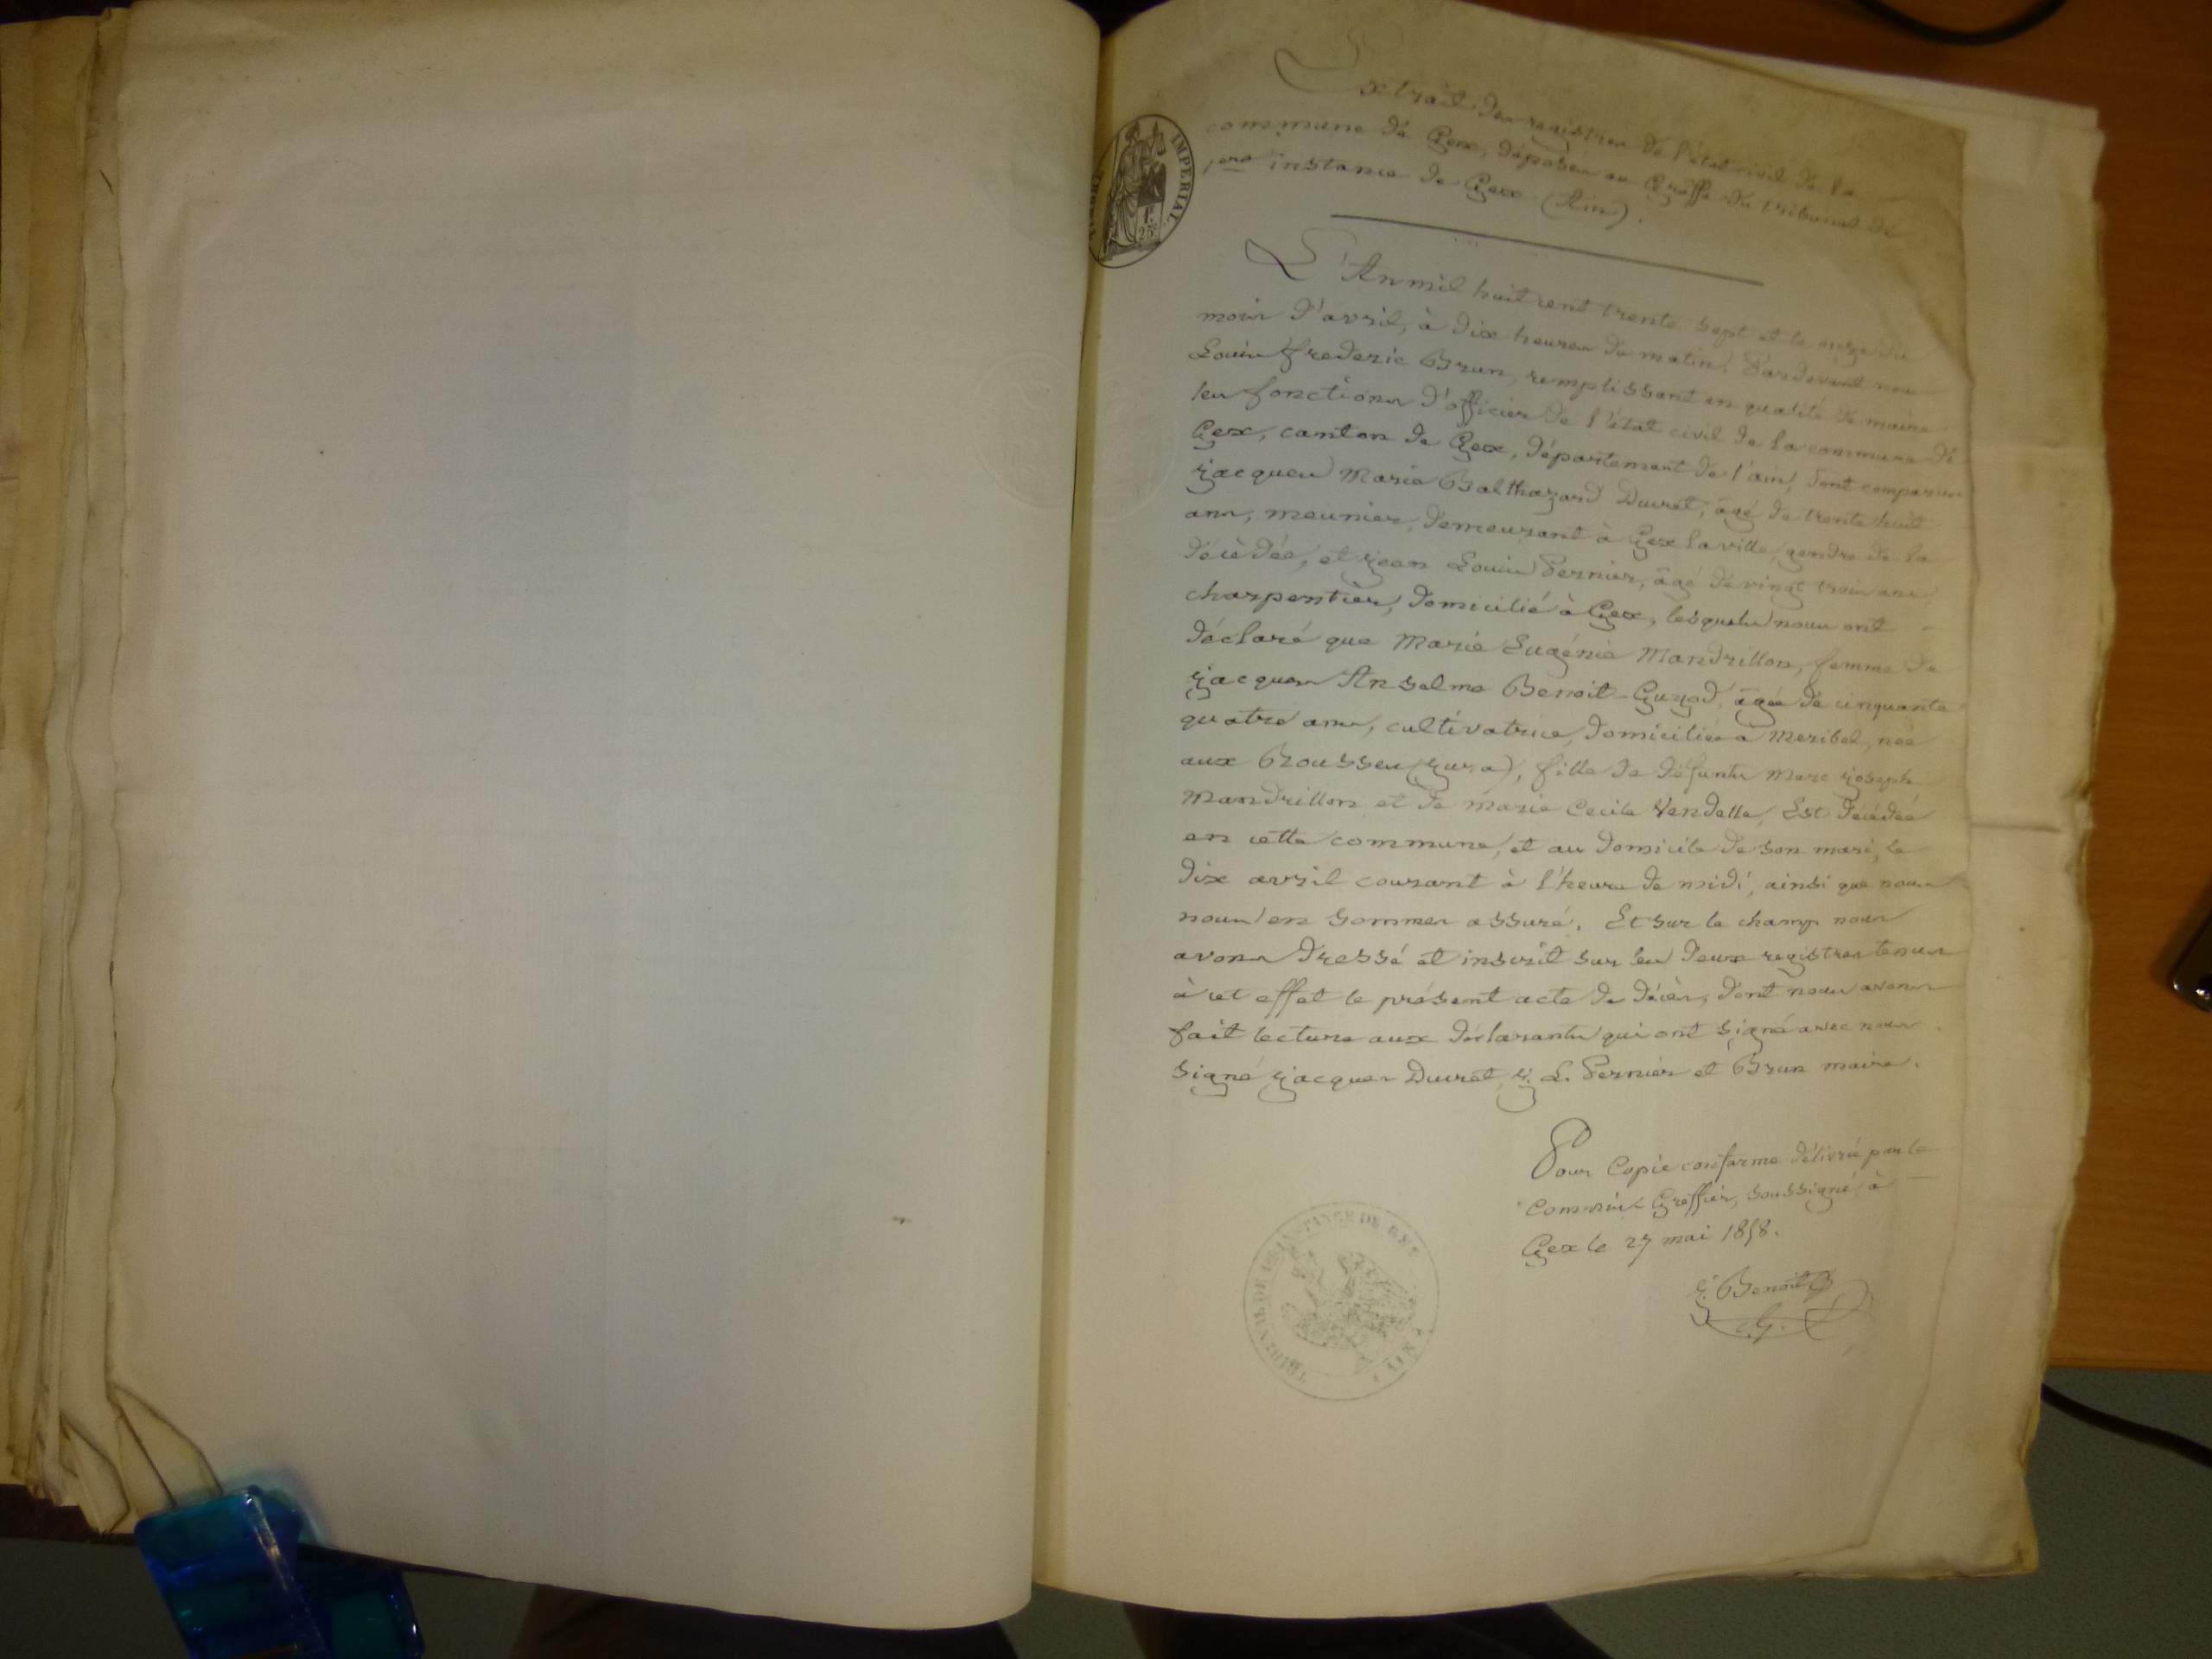 TIMBRE IMPERIAL
1f 25c
Extrait des registres de l'état civil de la
commune de Gex, déposés au Greffe du tribunal de
1ere instance de Gex (Ain).
L'An mil huit cent trente sept et le onze du
mois d'avril, à dix heures du matin, Pardevant nous
Louis frederic Brun, remplissant en qualité de maire
les fonctions d'officier de l'état civil de la commune de
Gex, canton de Gex, département de l'ain, sont comparus
jacques Marie Balthazard Duret, âgé de trente huit
ans, meunier, demeurant à Gex la ville, gendre de la
décédée, et jean Louis Pernier, âgé de vingt trois ans
charpentier, domicilié à Gex, lesquels nous ont
déclaré que Marie Eugénie Mandrillon, femme de
jacques Anselme Benoit-Guyod, âgée de cinquante
quatre ans, cultivatrice, domiciliée à Meribel, née
aux Rousses (jura), fille de défunts Marc joseph
Mandrillon et de marie Cecile Vandelle, Est décédée
en cette commune, et au domicile de son mari, le
dix avril courant à l'heure de midi, ainsi que nous
nous en sommes assuré. Et sur le champ nous
avons dressé et inscrit sur les deux registres tenus
à cet effet le présent acte de décès, dont nous avons
fait lecture aux déclarants qui ont signé avec nous.
signé jacques Duret, j. L. Pernier et Brun maire.
Pour Copie conforme délivrée par le
Commis-Greffier, soussigné, à
Gex le 27 mai 1858.
j. Benoit G
TRIBUNAL DE 1ERE INSTANCE DE GEX (AIN)